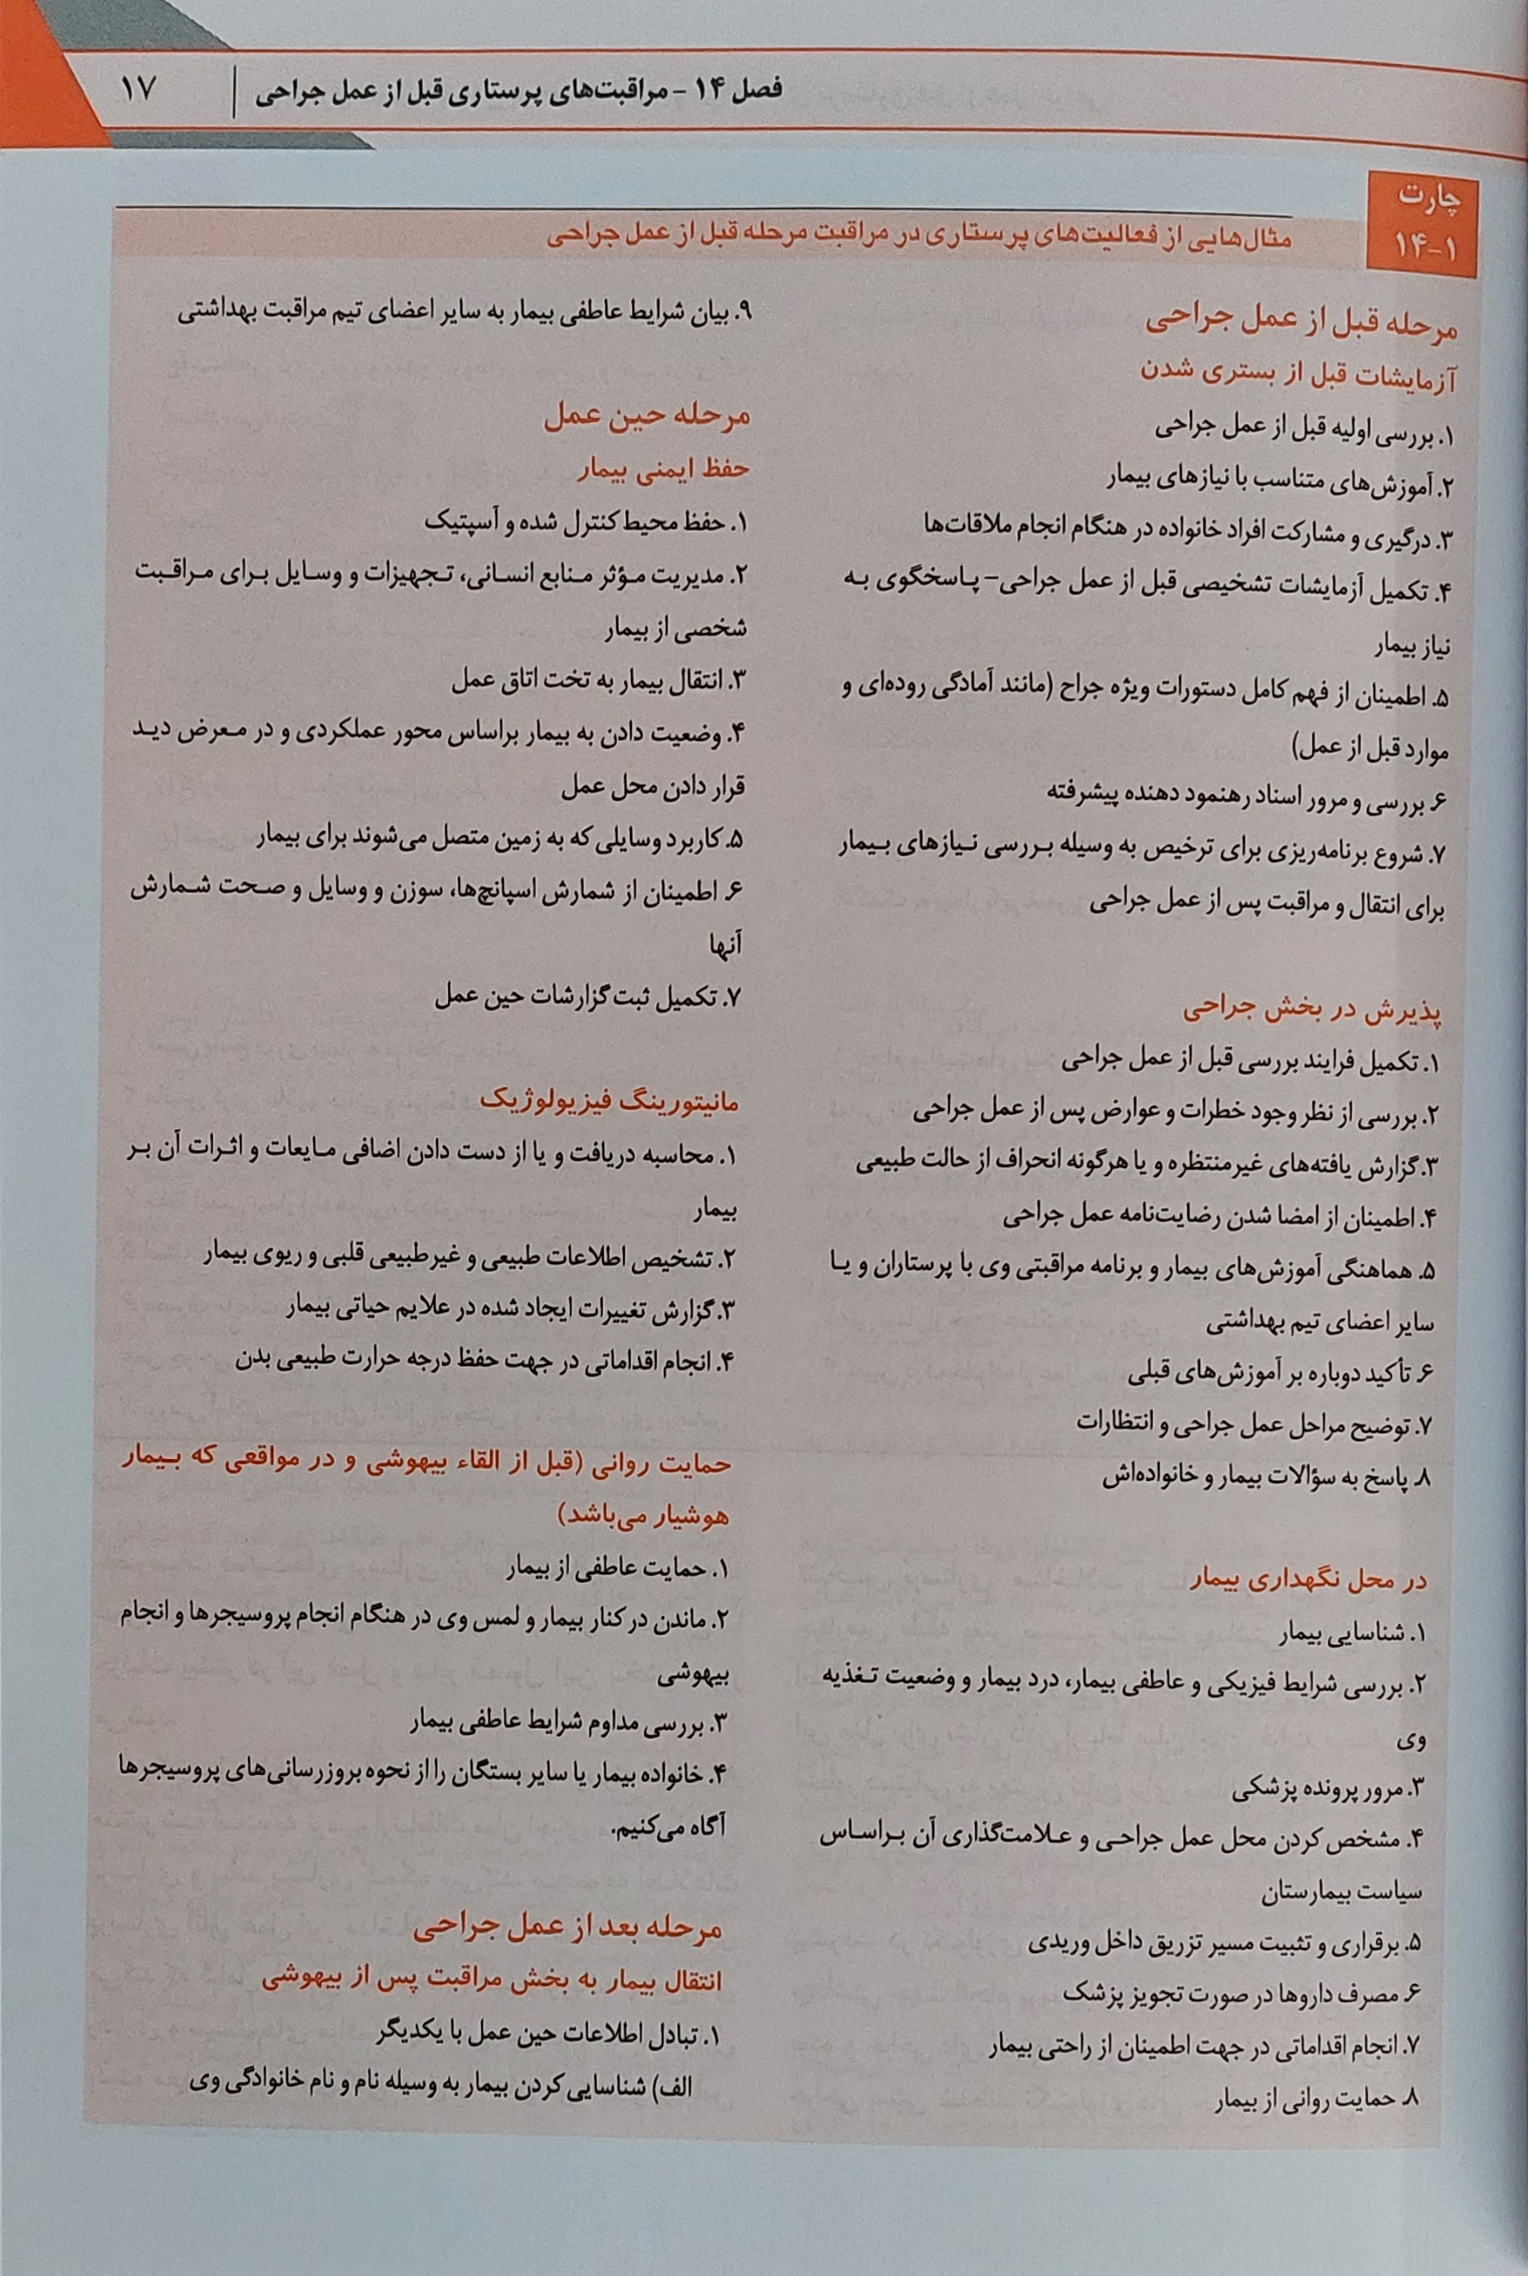 فصل ۱۴ - مراقبت‌های پرستاری قبل از عمل جراحی | ۱۷
چارت
۱۴-۱
مثال‌هایی از فعالیت‌های پرستاری در مراقبت مرحله قبل از عمل جراحی
مرحله قبل از عمل جراحی
آزمایشات قبل از بستری شدن
۱. بررسی اولیه قبل از عمل جراحی
۲. آموزش‌های متناسب با نیازهای بیمار
۳. درگیری و مشارکت افراد خانواده در هنگام انجام ملاقات‌ها
۴. تکمیل آزمایشات تشخیصی قبل از عمل جراحی- پاسخگوی به
نیاز بیمار
۵. اطمینان از فهم کامل دستورات ویژه جراح (مانند آمادگی روده‌ای و
موارد قبل از عمل)
۶. بررسی و مرور اسناد رهنمود دهنده پیشرفته
۷. شروع برنامه‌ریزی برای ترخیص به وسیله بررسی نیازهای بیمار
برای انتقال و مراقبت پس از عمل جراحی
پذیرش در بخش جراحی
۱. تکمیل فرایند بررسی قبل از عمل جراحی
۲. بررسی از نظر وجود خطرات و عوارض پس از عمل جراحی
۳. گزارش یافته‌های غیرمنتظره و یا هرگونه انحراف از حالت طبیعی
۴. اطمینان از امضا شدن رضایت‌نامه عمل جراحی
۵. هماهنگی آموزش‌های بیمار و برنامه مراقبتی وی با پرستاران و یا
سایر اعضای تیم بهداشتی
۶. تأکید دوباره بر آموزش‌های قبلی
۷. توضیح مراحل عمل جراحی و انتظارات
۸. پاسخ به سؤالات بیمار و خانواده‌اش
در محل نگهداری بیمار
۱. شناسایی بیمار
۲. بررسی شرایط فیزیکی و عاطفی بیمار، درد بیمار و وضعیت تغذیه
وی
۳. مرور پرونده پزشکی
۴. مشخص کردن محل عمل جراحی و علامت‌گذاری آن براساس
سیاست بیمارستان
۵. برقراری و تثبیت مسیر تزریق داخل وریدی
۶. مصرف داروها در صورت تجویز پزشک
۷. انجام اقداماتی در جهت اطمینان از راحتی بیمار
۸. حمایت روانی از بیمار
۹. بیان شرایط عاطفی بیمار به سایر اعضای تیم مراقبت بهداشتی
مرحله حین عمل
حفظ ایمنی بیمار
۱. حفظ محیط کنترل شده و آسپتیک
۲. مدیریت مؤثر منابع انسانی، تجهیزات و وسایل برای مراقبت
شخصی از بیمار
۳. انتقال بیمار به تخت اتاق عمل
۴. وضعیت دادن به بیمار براساس محور عملکردی و در معرض دید
قرار دادن محل عمل
۵. کاربرد وسایلی که به زمین متصل می‌شوند برای بیمار
۶. اطمینان از شمارش اسپانچ‌ها، سوزن و وسایل و صحت شمارش
آنها
۷. تکمیل ثبت گزارشات حین عمل
مانیتورینگ فیزیولوژیک
۱. محاسبه دریافت و یا از دست دادن اضافی مایعات و اثرات آن بر
بیمار
۲. تشخیص اطلاعات طبیعی و غیرطبیعی قلبی و ریوی بیمار
۳. گزارش تغییرات ایجاد شده در علایم حیاتی بیمار
۴. انجام اقداماتی در جهت حفظ درجه حرارت طبیعی بدن
حمایت روانی (قبل از القاء بیهوشی و در مواقعی که بیمار
هوشیار می‌باشد)
۱. حمایت عاطفی از بیمار
۲. ماندن در کنار بیمار و لمس وی در هنگام انجام پروسیجرها و انجام
بیهوشی
۳. بررسی مداوم شرایط عاطفی بیمار
۴. خانواده بیمار یا سایر بستگان را از نحوه بروزرسانی‌های پروسیجرها
آگاه می‌کنیم.
مرحله بعد از عمل جراحی
انتقال بیمار به بخش مراقبت پس از بیهوشی
۱. تبادل اطلاعات حین عمل با یکدیگر
الف) شناسایی کردن بیمار به وسیله نام و نام خانوادگی وی